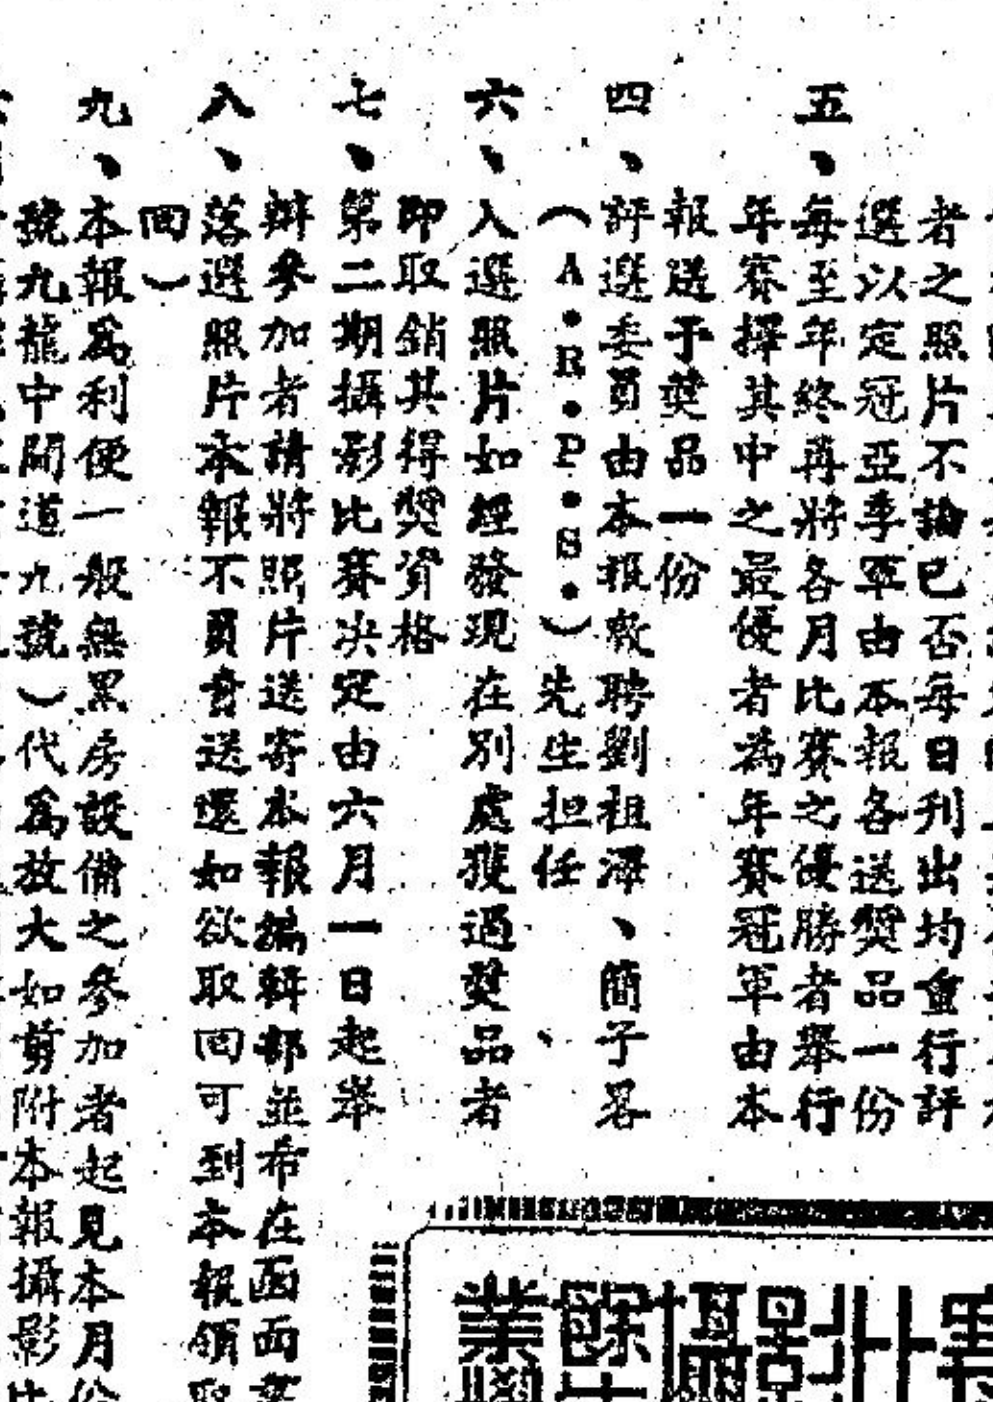 者之照片不論已否每日刊出均重行評
選以定冠亞季軍由本報各送獎品一份
五、每至年終再將各月比賽之優勝者舉行
年賽擇其中之最優者為年賽冠軍由本
報送予獎品一份
四、評選委員由本報敦聘劉祖澤、簡子畧
(A•R•P•S•)先生担任
六、入選照片如經發現在別處獲過獎品者
即取銷其得獎資格
七、第二期攝影比賽决定由六月一日起举
辦參加者請將照片送寄本報編輯部並希在函面
八、落選照片本報不負責送還如欲取回可到本報領取
回)
九、本報爲利便一般無黑房設備之參加者起見本月份
號九龍中間道九號)代爲放大如剪附本報攝影比
業餘攝影比賽